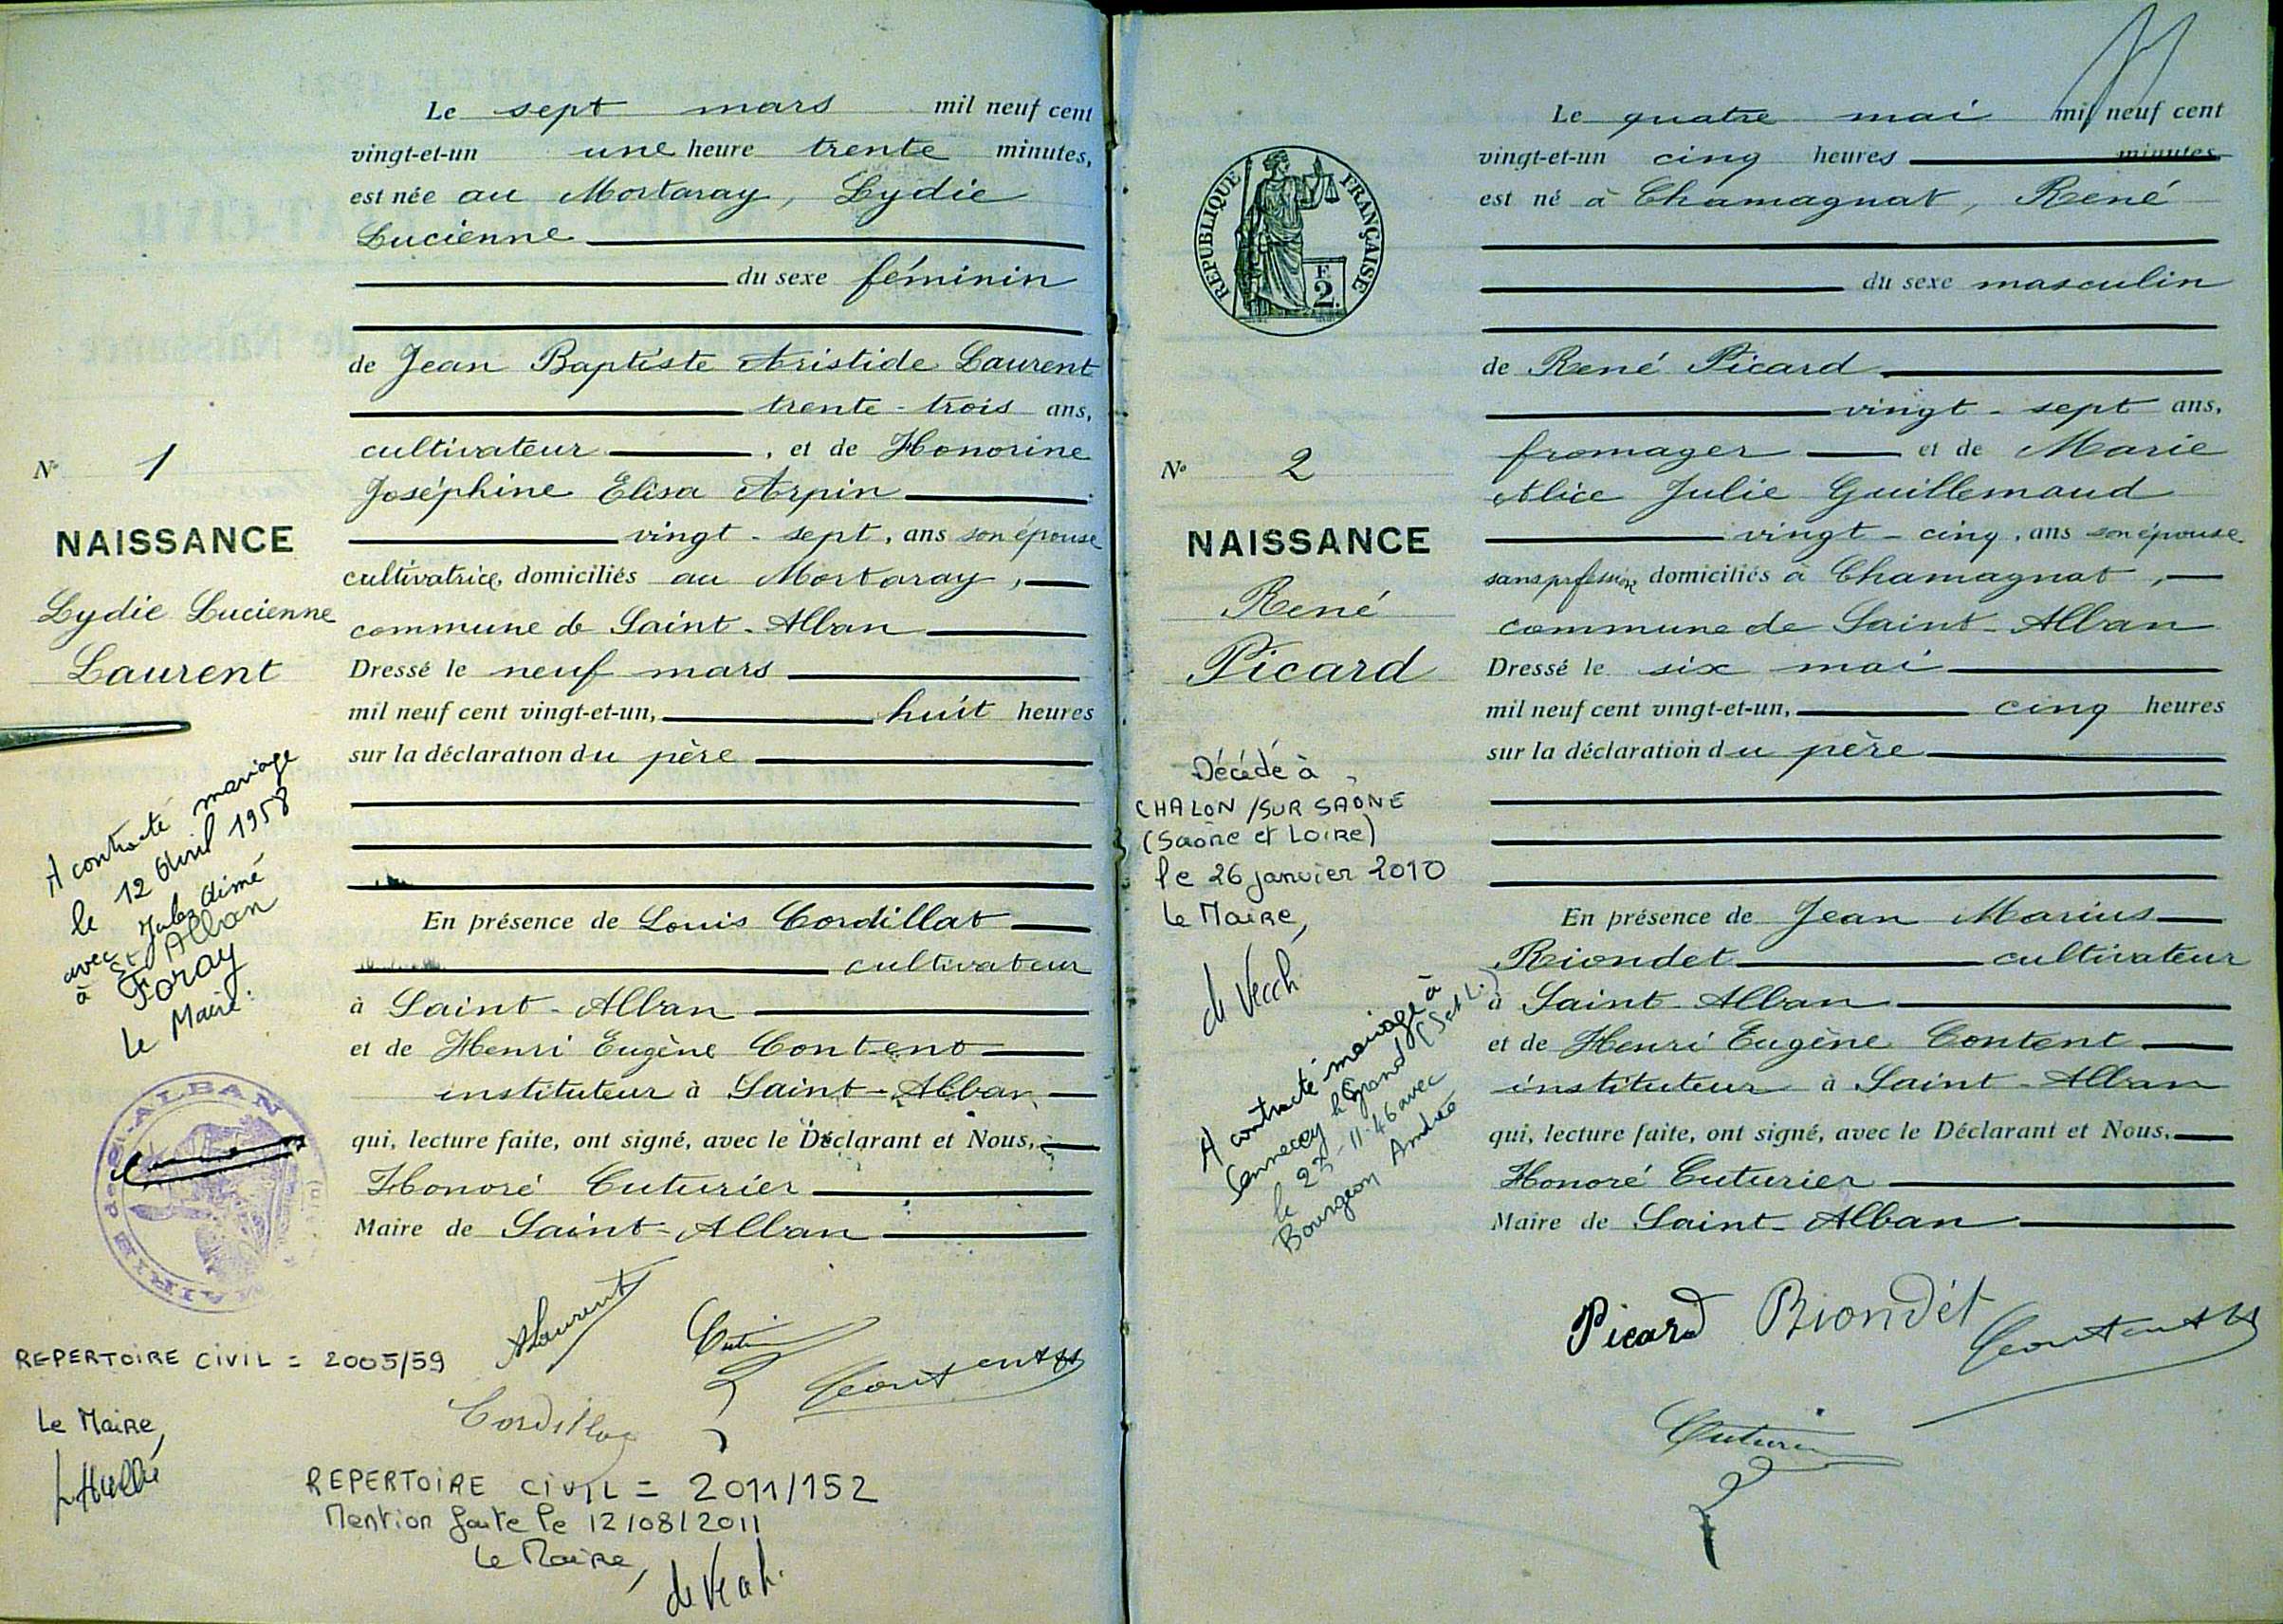 Le sept mars mil neuf cent
vingt-et-un une heure trente minutes,
est née au Mortaray, Lydie
Lucienne
du sexe féminin
de Jean Baptiste Aristide Laurent
trente-trois ans,
cultivateur, et de Honorine
Joséphine Elisa Arpin
vingt-sept, ans son épouse
cultivatrice, domiciliés au Mortaray,
commune de Saint-Alban
Dressé le neuf mars
mil neuf cent vingt-et-un, huit heures
sur la déclaration du père
En présence de Louis Cordillat
cultivateur
à Saint-Alban
et de Henri Eugène Content
instituteur à Saint-Alban
qui, lecture faite, ont signé, avec le Déclarant et Nous,
Honoré Cuturier
Maire de Saint-Alban
N° 1
NAISSANCE
Lydie Lucienne
Laurent
A contracté mariage
le 12 Avril 1958
avec Jules Aimé
à St Alban
Foray
Le Maire:
MAIRIE de St-ALBAN
ALaurent
Cuturi
Content
Cordillat
REPERTOIRE CIVIL = 2005/59
Le Maire,
REPERTOIRE CIVIL = 2011/152
Mention faite le 12/08/2011
Le Maire,
de Vech.
Le quatre mai mil neuf cent
vingt-et-un cinq heures minutes
est né à Chamagnat, René
du sexe masculin
de René Picard
vingt-sept ans,
fromager et de Marie
Alice Julie Guillemaud
vingt-cinq, ans son épouse
sans profession domiciliés à Chamagnat,
commune de Saint-Alban
Dressé le six mai
mil neuf cent vingt-et-un, cinq heures
sur la déclaration du père
En présence de Jean Marius
Riondet cultivateur
à Saint-Alban
et de Henri Eugène Content
instituteur à Saint-Alban
qui, lecture faite, ont signé, avec le Déclarant et Nous.
Honoré Cuturier
Maire de Saint-Alban
RÉPUBLIQUE FRANÇAISE
F.
2.
N° 2
NAISSANCE
René
Picard
Décédé à
CHALON/SUR SAÔNE
(Saône et Loire)
le 26 janvier 2010
Le Maire,
de Vech
A contracté mariage à
Sennecey le Grand (S et L.)
le 23-11-46 avec
Bourgeon Andréa
Picard Riondét
Content
Cuturi